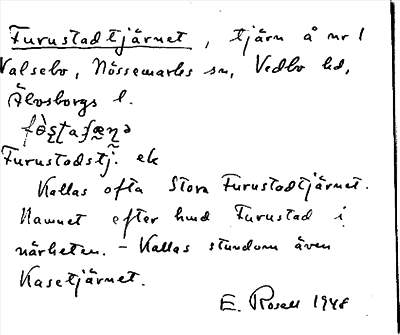 Furustadtjärnet, tjärn å nr 1
Valsebo, Nössemarks sn, Vedbo hd,
Älvsborgs l.
Furustodstj. ek
Kallas ofta Stora Furustadtjärnet.
Namnet efter hmd Furustad i
närheten. – Kallas stundom även
Kasetjärnet.
E. Rosell 1948